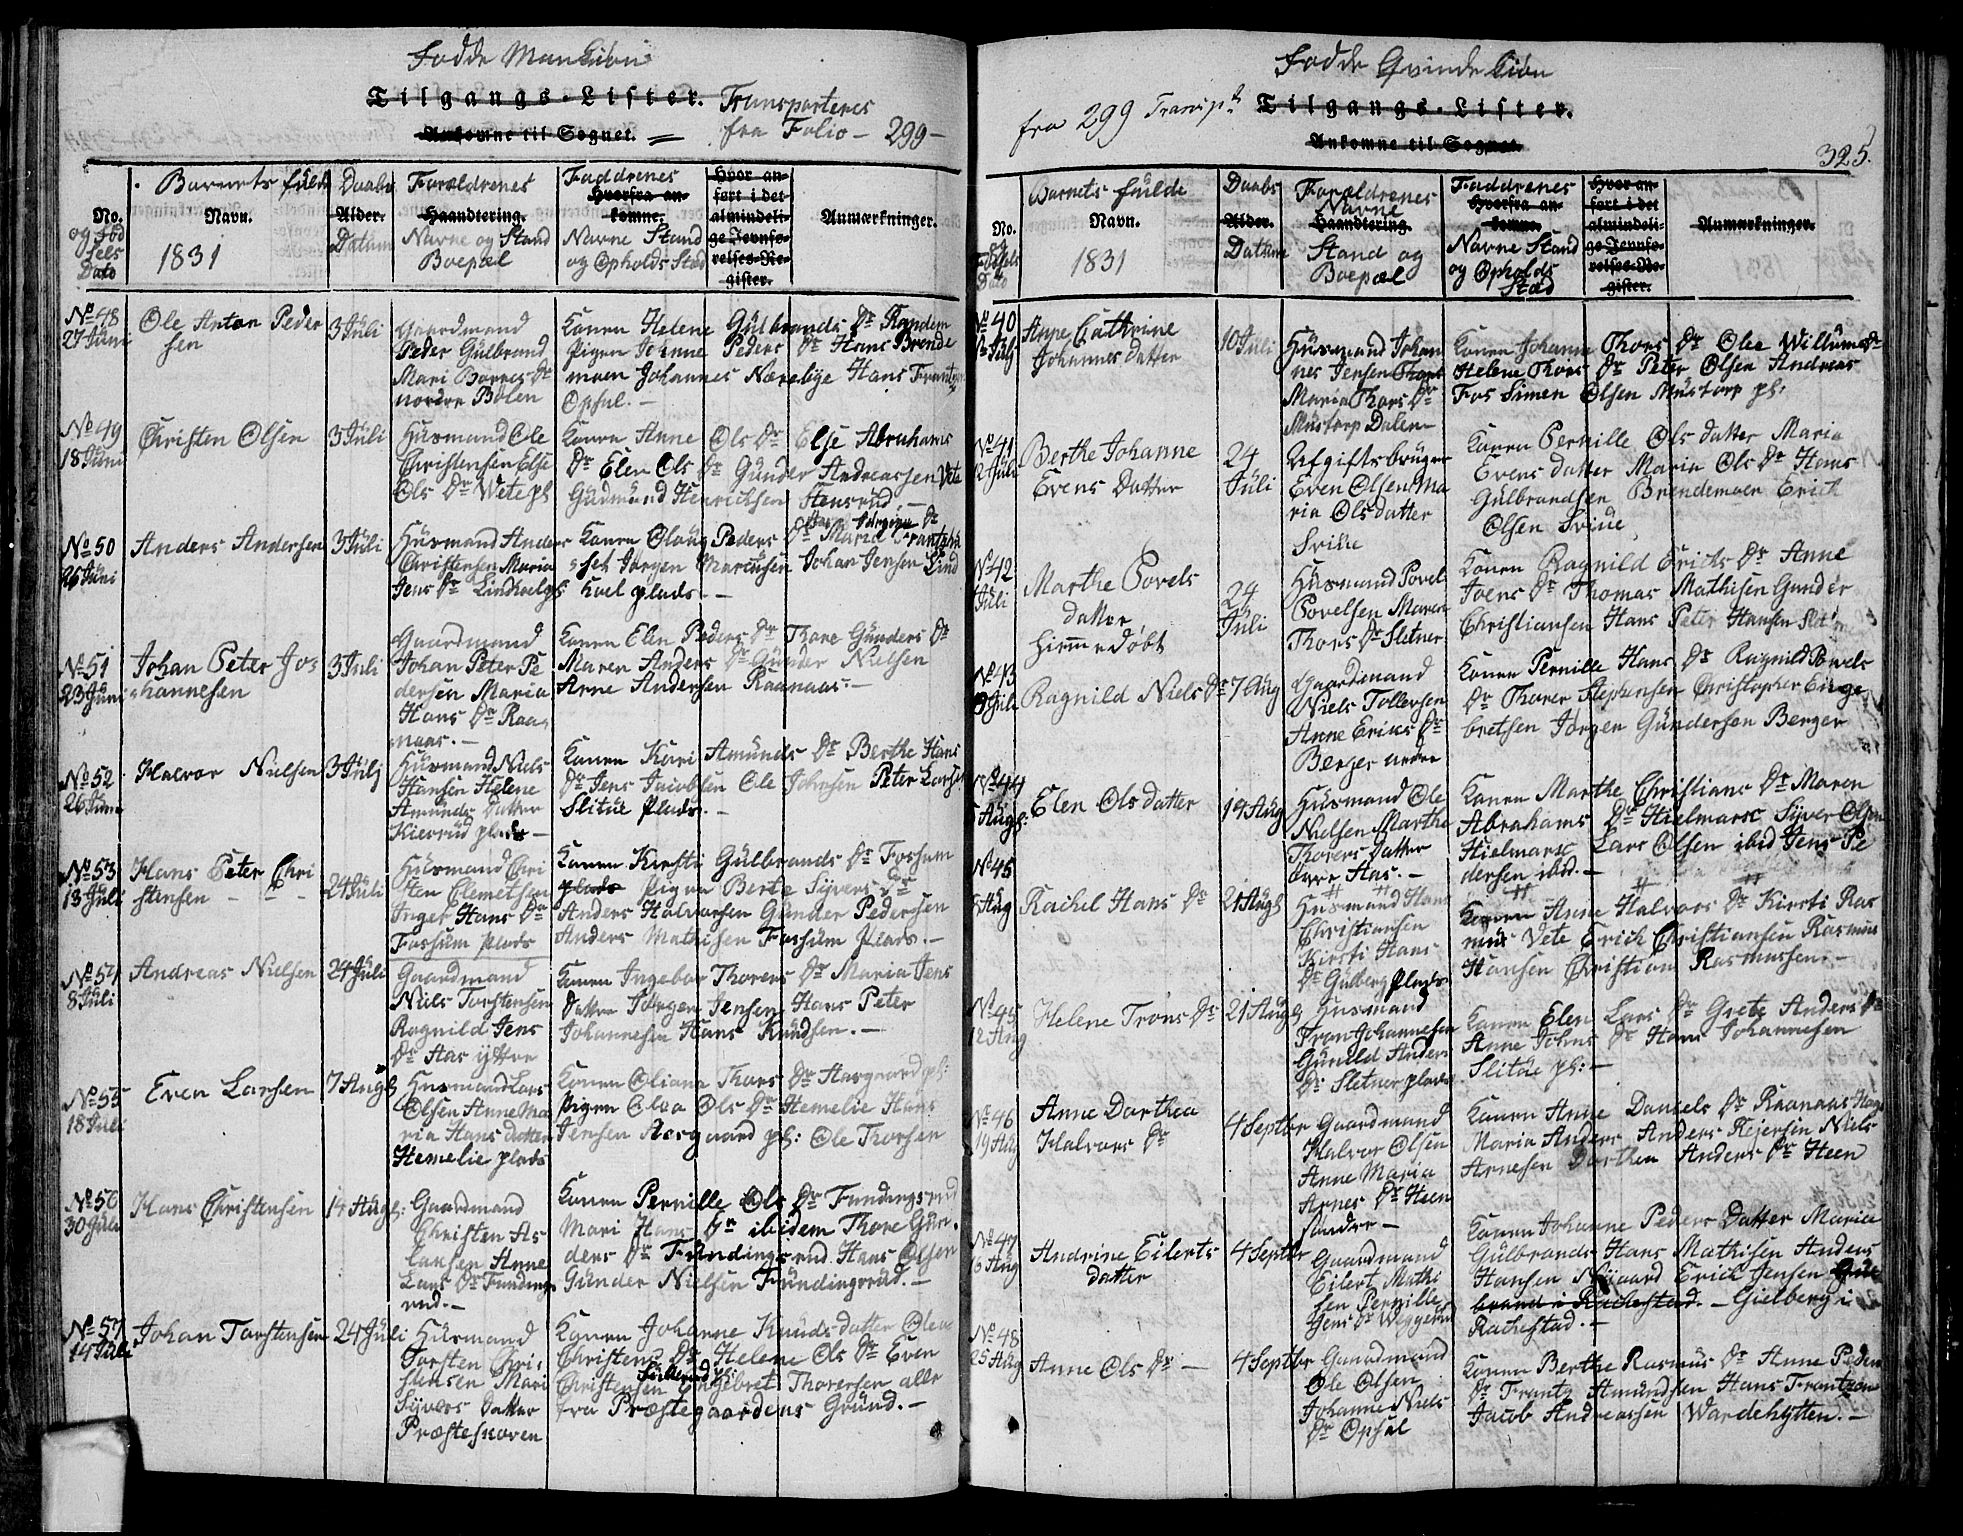 Fødde Mankiøn
Tilgangs-Lister. Transporteres
Ankomne til Sognet. fra Folio - 299 -
No. og Fød sels Dato
Barnets fulde Navn. 1831
Daabs Alder. Datum
Forældrenes Haandtering. Navne og Stand Boepæl
Faddrenes Hvorfra ankomne. Navne Stand og Opholds Stæd
Hvor anført i det almindelige Jevnførelses-Register.
Anmærkninger.
No 48 27 Juni
Ole Anton Peder
sen
3 Juli
Gaardmand
Peder Gulbrand
Mari Borres Dr
nordre Bølen
Konen Helene Gulbrands Dr Randem
Pigen Johnne Peders Dr Hans Brende
moen Johannes Nærelige Hans Frantzen
Opsal. -
No 49 18 Juni
Christen Olsen
3 Juli
Husmand Ole
Christensen Else
Ols Dr Wete pl
Konen Anne Ols Dr Else Abrahams
Dr Elen Ols Dr Gunder Andreassen Vete
Gudmund Henrichsen Stensrud. -
No 50 26 Juni
Anders Andersen
3 Juli
Husmand Anders
Christensen Maria
Jens Dr Lindhoelpl
Konen Olaug Peders Dr Maria Frantzen
Jørgen Marcusen Johan Jensen Lind
hoel plads. -
No 51 23 Juni
Johan Peter Jo-
hannesen
3 Juli
Gaardmand
Johan Peter Pe
dersen Maria
Hans Dr Raa
naas. -
Konen Elen Peders Dr Thore Gunders Dr
Maren Anders Dr Gunder Nielsen
Arne Andersen Raanaas. -
No 52 26 Juni
Halvor Nielsen
3 Julj
Husmand Niels
Hansen Helene
Amunds Datter
Kiersrud plads -
Konen Kari Amunds Dr Berthe Hans
Dr Jens Jacobsen Ole Johnsen Peter Larsen
Slitue Plads. -
No 53 13 Juli
Hans Peter Chri
stensen - -
24 Juli
Husmand Chri
sten Clemetsen
Inger Hans Dr
Fossum plads
Konen Kirsti Gulbrands Dr Fossum
plads Pigen Berte Syvers Dr
Anders Halvorsen Gunder Pedersen
Anders Mathisen Fossum Plads. -
No 54 8 Juli
Andreas Nielsen
24 Juli
Gaardmand
Niels Torstensen
Ragnild Jens
Dr Aas yttre
Konen Ingebor Thorers Dr Maria Jens
Datter Jørgen Jensen Hans Peter
Johannesen Hans Knudsen. -
No 55 18 Juli
Even Larsen
7 Augs
Husmand Lars
Olsen Anne Ma
ria Hans datter
Hemelie plads
Konen Oliana Thors Dr Aasgaard pl:
Pigen Olea Ols Dr Hemelie Hans
Jensen Aasgaard pl: Ole Thorsen
No 56 30 Juli
Hans Christensen
14 Augs:
Gaardmand
Christen As
lausen Anne
Lars Dr Funding
rud. -
Konen Pernille Ols Dr Fundingsrud
Mari Hans Dr ibidem Thore Gun-
ders Dr Fundingsrud Hans Olsen
Gunder Nielsen Fundingsrud. -
No 57 14 Juli
Johan Torstensen
24 Juli
Husmand
Torsten Chri-
stensen Mari
Syvers Datter
Præsteskoven
Konen Johanne Knuds datter Olea
Christens Dr Helene Ols Dr Even
Christensen Engebret Thoresen alle
fra Præstegaardens Grund. -
Fødde Qvindekiøn
fra 299 Transpt Tilgangs-Lister.
Ankomne til Sognet.
325.
No. og Fødsels Dato
Barnets fulde Navn. 1831
Daabs Alder. Datum
Forældrenes Navne Haandtering. Stand og Boepæl
Faddrenes Hvorfra ankomne. Navne Stand og Opholds Stæd
Hvor anført i det almindelige Jevnførelses-Register.
Anmærkninger.
No 40 Julj
Anne Cathrine
Johannes datter
10 Juli
Husmand Johan
nes Jensen
Maria Thors Dr
Mustorp Dalen
Konen Johanne Thors Dr Olea Willums Dr
Helene Thors Dr Peter Olsen Andreas
Fos Simen Olsen Mustorp pl:
No 41 2 Juli
Berthe Johanne
Evens Datter
24
Juli
Afgiftsbruger
Even Olsen Ma
ria Ols datter
Sviue
Konen Pernille Ols datter Maria
Evens datter Maria Ols Dr Hans
Gulbrandsen Brendemoen Erich
Olsen Sviue
No 42 Juli
Marthe Povels
datter
Hiemmedøbt
24
Juli
Husmand Povel
Povelsen Maren
Thors Dr Sletner
Konen Ragnild Erichs Dr Anne
Joens Dr Thomas Mathisen Gunder
Christiansen Hans Peter Hansen
No 43 Juli
Ragnild Niels Dr
7 Aug
Gaardmand
Niels Tollersen
Anne Erics Dr
Berger nedre
Konen Pernille Hans Dr Ragnild Povels
Dr Thorer Stephensen Christopher Enge
bretsen Jørgen Gundersen Berger
No 44 Augs:
Elen Ols datter
14 Aug
Husmand Ole
Nielsen Marthe
Thorers datter
øvre Aas. -
Konen Marthe Christians Dr Maren
Abrahams Dr Hielmark Syver Olsen
Hielmark Lars Olsen ibid Jens Pe
dersen ibid. -
No 45 8 Aug
Rachel Hans Dr
21 Augs
Husmand Hans
Christiansen
Kirsti Hans
Dr Gulberg plads
Konen Anne Halvors Dr Kirsti Ras
mus Vete Erich Christiansen Rasmus
Hansen Christian Rasmussen. -
No 45 12 Aug
Helene Trons Dr
21 Augs
Husmand
Tron Johannesen
Gunild Anders
Dr Sletner plads
Konen Elen Lars Dr Grete Anders Dr
Anne Johns Dr Hans Johannesen
Slitue pl: -
No 46 19 Aug
Anne Dorthea
Halvors Dr
4 Septbr
Gaardmand
Halvor Olsen
Anne Maria
Arnes Dr Heen
søndre -
Konen Anne Daniels Dr Raanaas
Maria Anders Anders Rejersen Niels
Arnesen Dorthea Anders Dr Heen
No 47 16 Aug
Andrine Eilerts
datter
4 Septbr
Gaardmand
Eilert Mathi
sen Pernille
Jens Dr
Konen Johanne Peders Datter Maria
Gulbrands Hans Mathisen Anders
Hansen Nygaard Erich Jensen
brand i Rachestad. - Gielberg i
Rachestad. -
No 48 25 Aug
Anne Ols Dr -
4 Septbr
Gaardmand
Ole Olsen
Johanne Niels
Dr Opsal
Konen Berthe Rasmus Dr Anne Peders
Dr Frantz Amundsen Hans Frantzen
Jacob Andreassen Wardehytten. -